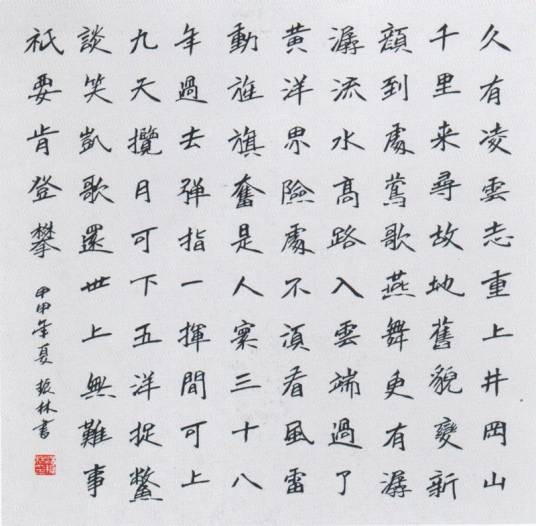 久有凌雲志重上井岡山
千里来尋故地舊貌變新
顔到處鶯歌燕舞更有潺
潺流水高路入雲端過了
黄洋界險處不須看風雷
動旌旗奮是人寰三十八
年過去弹指一揮間可上
九天攬月可下五洋捉鱉
談笑凱歌還世上無難事
祇要肯登攀
甲申年夏 振林書